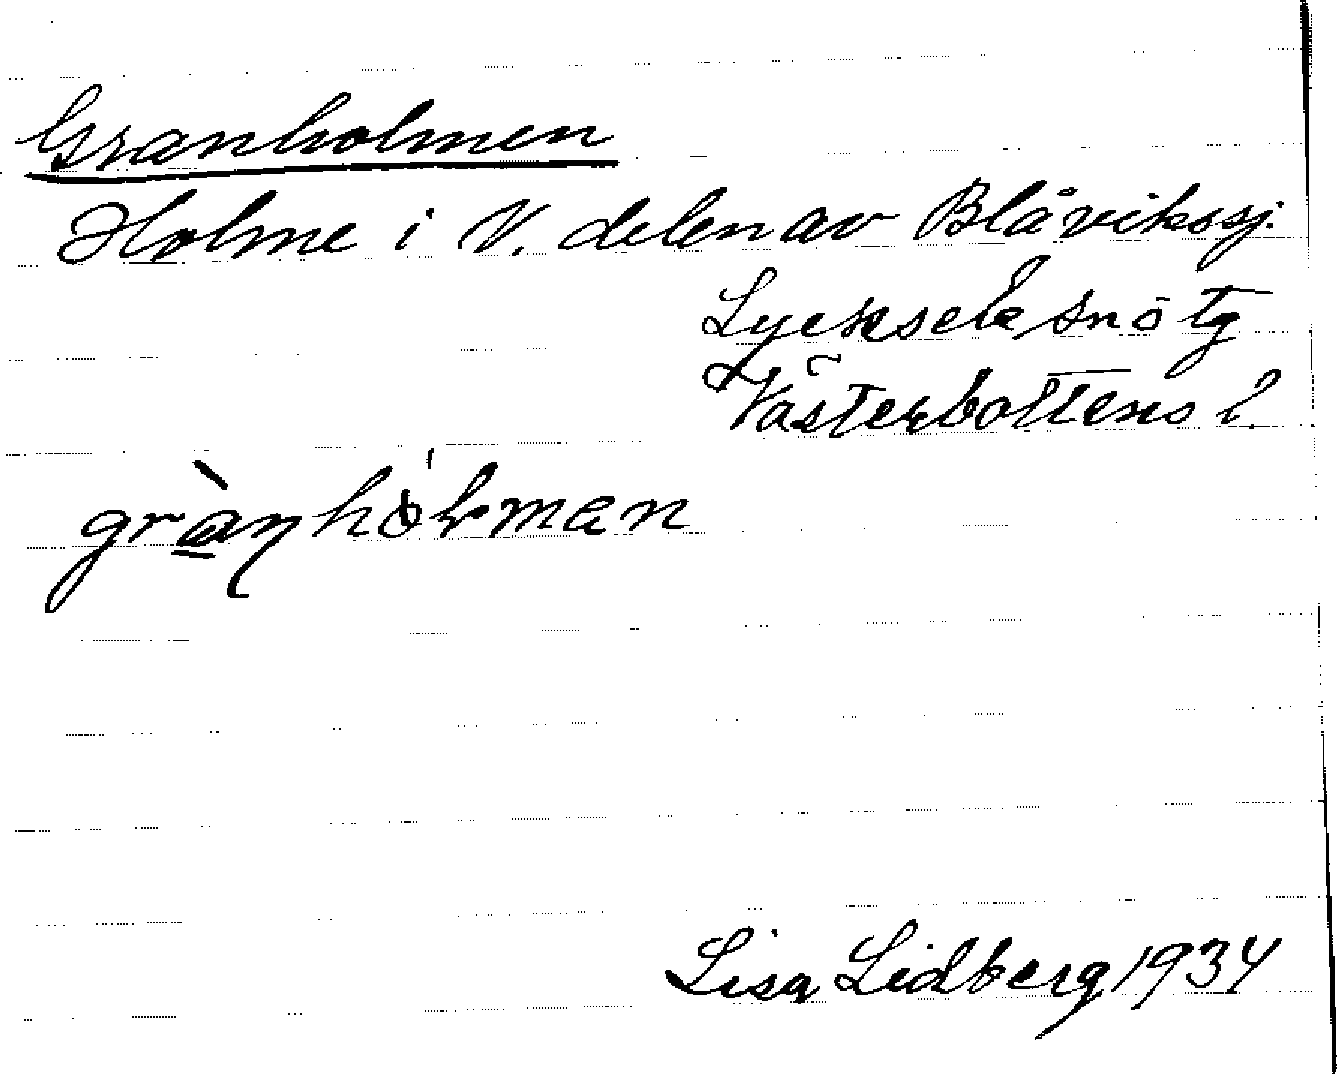 Granholmen
Holme i V. delen av Blåvikssj.
Lycksele snötg
Västerbottens l.
grànhólman
Lisa Lidberg 1934